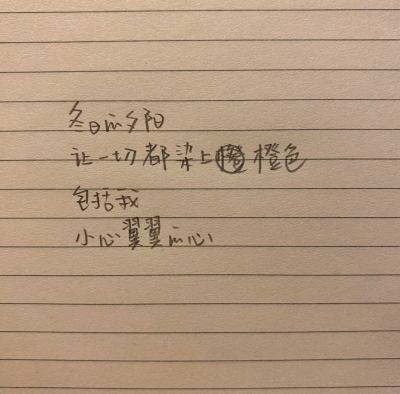 冬日的夕阳
让一切都染上橙色
包括我
小心翼翼的心